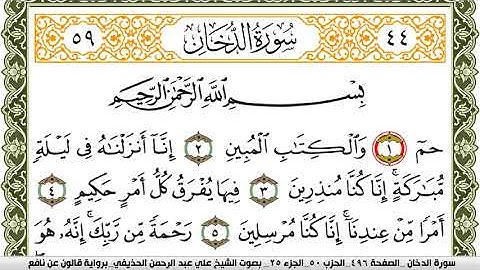 ٥٩ سُورَةُ الدُّخَانِ ٤٤
بِسْمِ اللَّهِ الرَّحْمَٰنِ الرَّحِيمِ
حمٓ ١ وَالْكِتَابِ الْمُبِينِ ٢ إِنَّا أَنزَلْنَاهُ فِي لَيْلَةٍ
مُّبَارَكَةٍ إِنَّا كُنَّا مُنذِرِينَ ٣ فِيهَا يُفْرَقُ كُلُّ أَمْرٍ حَكِيمٍ ٤
أَمْرًا مِّنْ عِندِنَا إِنَّا كُنَّا مُرْسِلِينَ ٥ رَحْمَةً مِّن رَّبِّكَ إِنَّهُ هُوَ
سورة الدخان _الصفحة ٤٩٦_الحزب ٥٠_الجزء ٢٥_ بصوت الشيخ علي عبد الرحمن الحذيفي_برواية قالون عن نافع